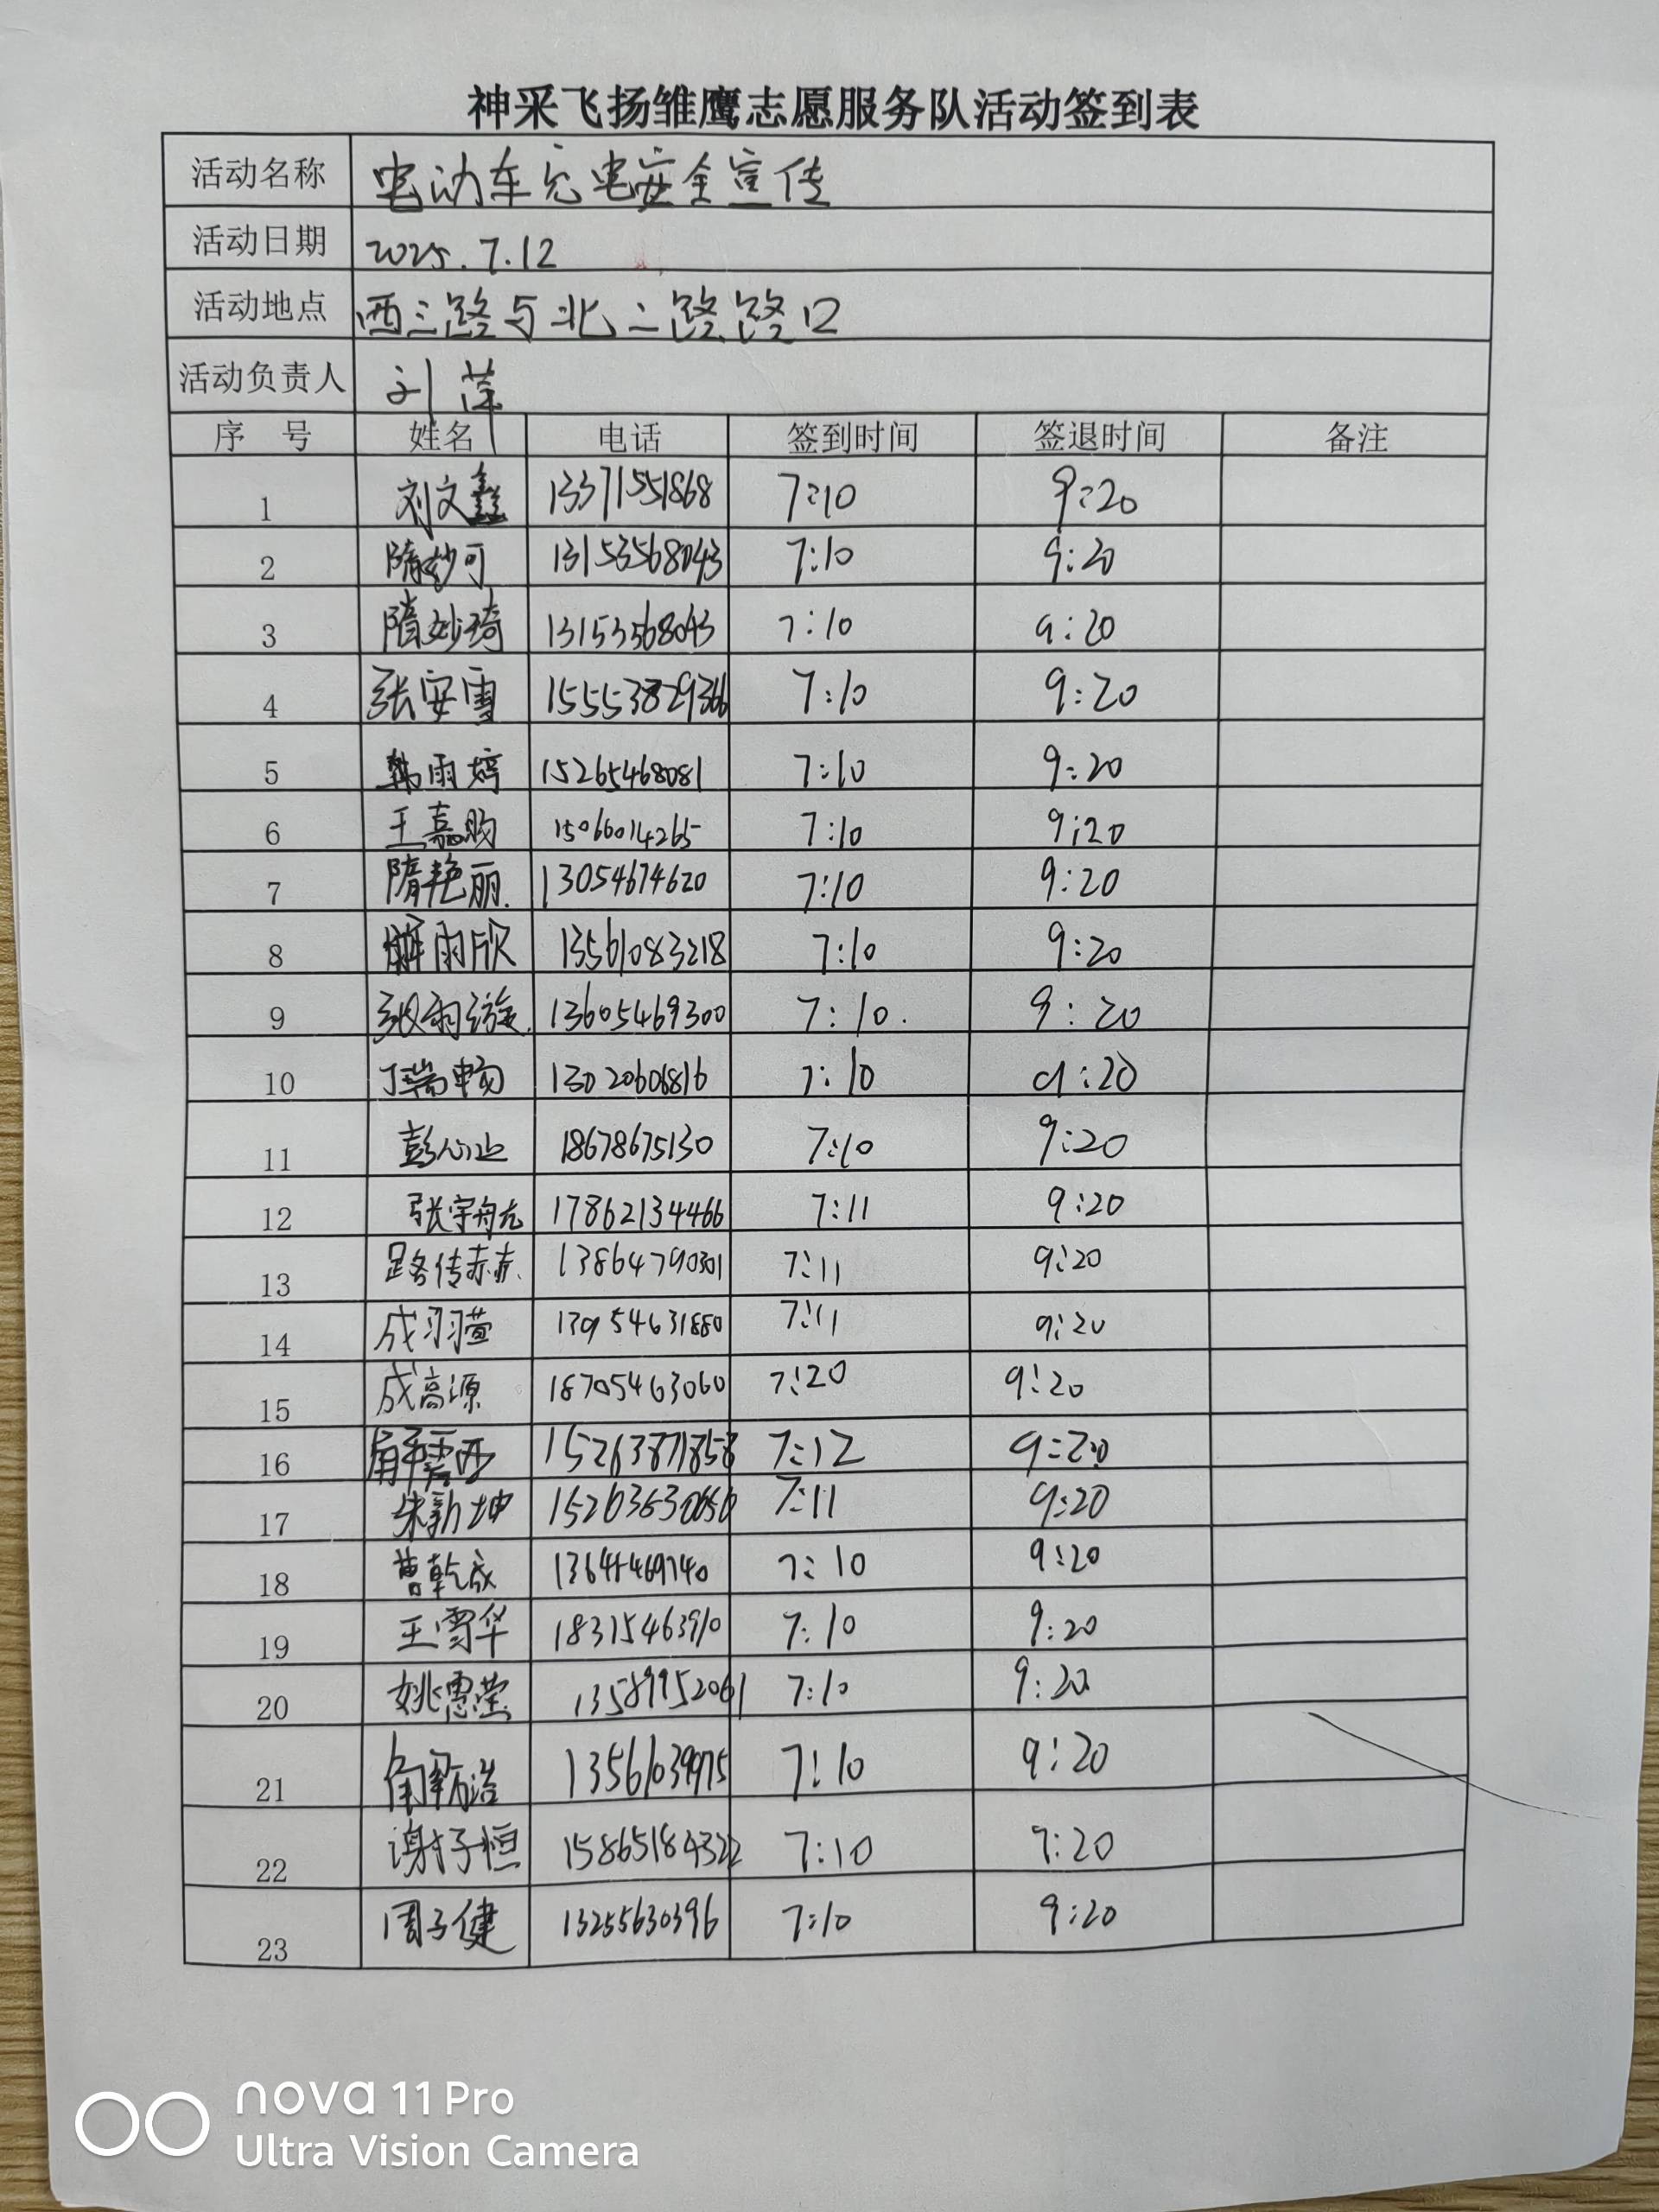 神采飞扬雏鹰志愿服务队活动签到表
活动名称 电动车充电安全宣传
活动日期 2025.7.12
活动地点 西三路与北二路路口
活动负责人 刘萍
序 号 姓名 电话 签到时间 签退时间 备注
1 刘文鑫 13371551868 7:10 9:20
2 隋妙可 13153568043 7:10 9:20
3 隋妙琦 13153568043 7:10 9:20
4 张安雪 15553829366 7:10 9:20
5 韩雨婷 15265468081 7:10 9:20
6 王嘉昫 15066014265 7:10 9:20
7 隋艳丽 13054674620 7:10 9:20
8 解雨欣 13561083218 7:10 9:20
9 张雨漩 13605469300 7:10 9:20
10 丁瑞畅 13020606816 7:10 9:20
11 彭 18678675130 7:10 9:20
12 张宇航 17862134466 7:11 9:20
13 路传赫 13864790301 7:11 9:20
14 成羽萱 13954631880 7:11 9:20
15 成高源 18705463060 7:20 9:20
16 解雲西 15263871858 7:12 9:20
17 朱新坤 7:11 9:20
18 曹乾成 7:10 9:20
19 王雪华 18315463910 7:10 9:20
20 姚惠莹 13589952061 7:10 9:20
21 解筋浩 13561039975 7:10 9:20
22 谢子恒 15865184322 7:10 9:20
23 周子健 13255630396 7:10 9:20
nova 11 Pro
Ultra Vision Camera